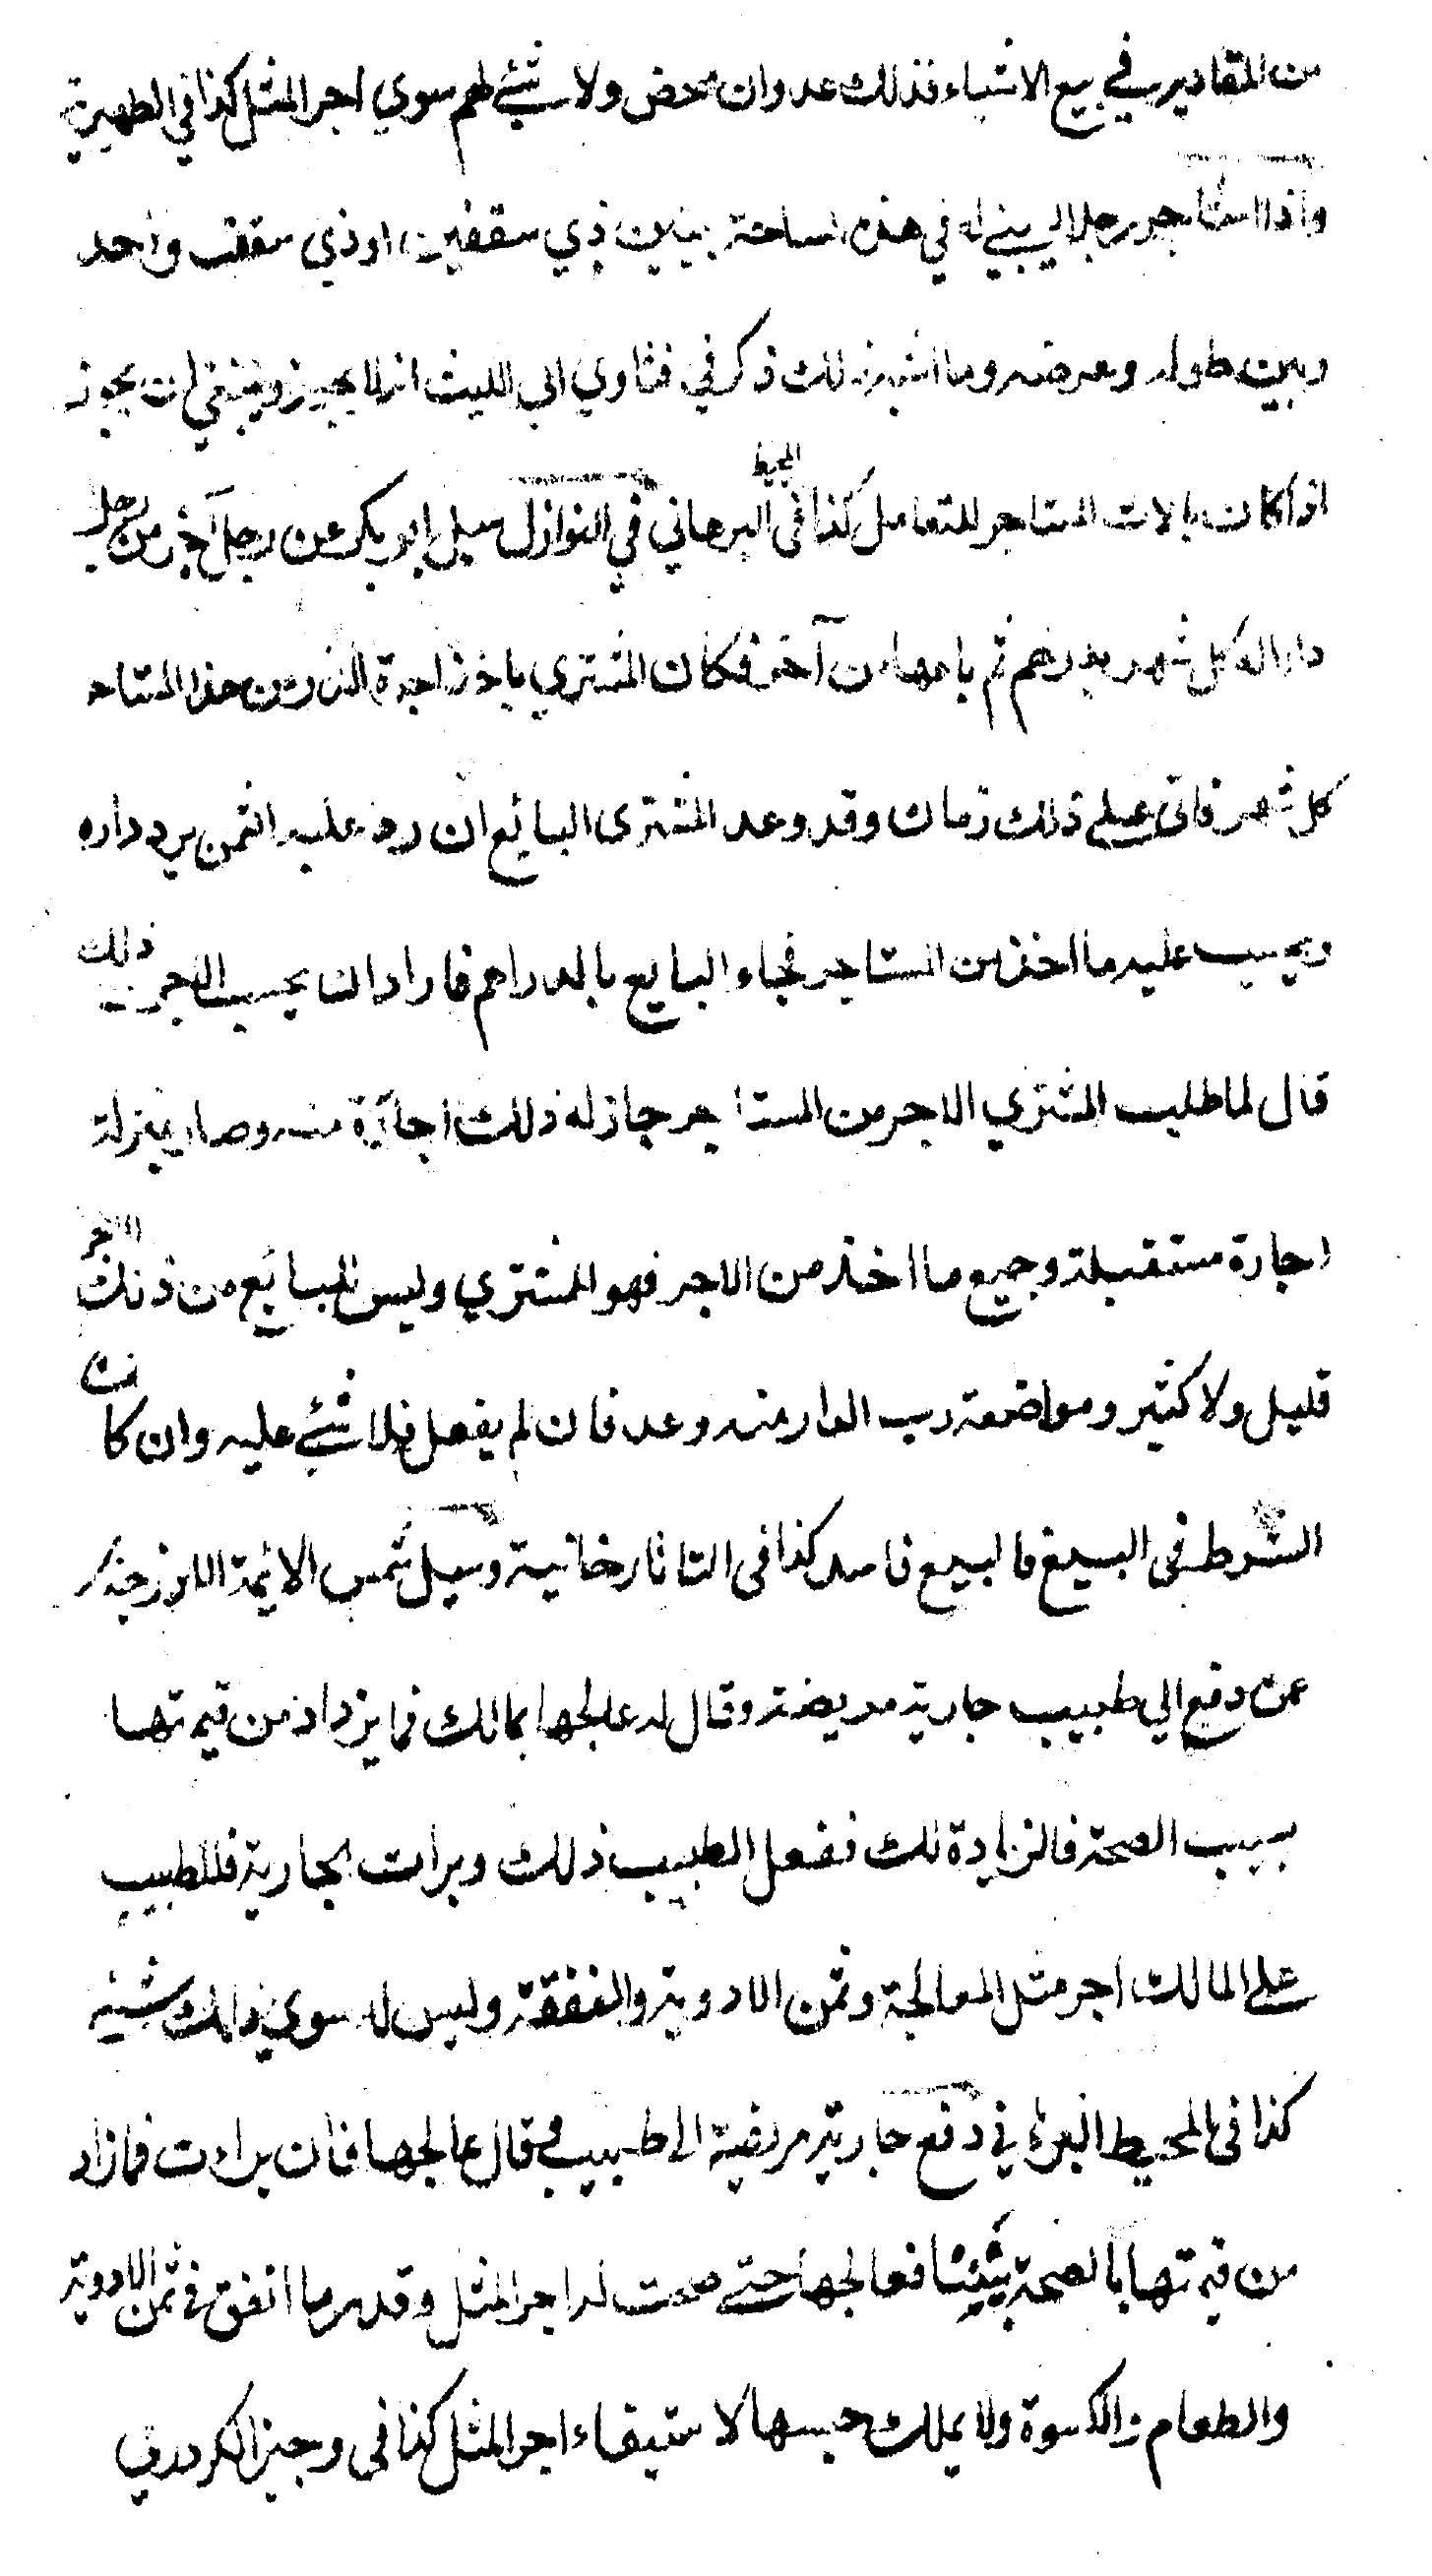 من المقادير في بيع الاشياء فذلك عدوان محض ولا شئ لهم سوي اجر المثل كذا في الظهيرية
واذا استاجر رجلا ليبني له في هذه الساحة بيتين ذي سقفين او ذي سقف واحد
وبين طوله وعرضه وما اشبه ذلك ذكر في فتاوي ابي الليث انه لا يجيز وينبغي ان يجوز
اذا كان بالات المستاجر للتعامل كذا في المحيط البرهاني في النوازل سيل ابو بكر عن رجل آجر من رجل
دارا له كل شهر بدرهم ثم باعها من آخر فكان المشتري ياخذ اجرة الدار من هذا المستاجر
كل شهر فاتى علي ذلك زمان وقد وعد المشترى البائع ان رد عليه الثمن يرد داره
ويحسب عليه ما اخذ من المستاجر فجاء البايع بالدراهم فاراد ان يحسب الاجر من ذلك
قال لما طلب المشتري الاجر من المستاجر جاز له ذلك اجازة منه وصار بمنزلة
اجارة مستقبلة وجميع ما اخذ من الاجر فهو للمشتري وليس للبائع من ذلك الاجر
قليل ولا كثير ومواضعة رب الدار منه وعد فان لم يفعل فلا شئ عليه وان كان
الشرط في البيع فالبيع فاسد كذا في التاتارخانية وسيل شمس الائمة الاوزجندي
عمن دفع الي طبيب جارية مريضة وقال له عالجها بمالك فما يزداد من قيمتها
بسبب الصحة فالزيادة لك ففعل الطبيب ذلك وبرات الجارية فللطبيب
علي المالك اجر مثل المعالجة وثمن الادوية والنفقة وليس له سوي ذالك شئ
كذا في المحيط البرهاني دفع جارية مريضة الى طبيب وقال عالجها فان براءت فما زاد
من قيمتها بالصحة شيئا فعالجها حتي صحت له اجر المثل وقدر ما انفق في ثمن الادوية
والطعام والكسوة ولا يملك حبسها لاستيفاء اجر المثل كذا في وجيز الكردري